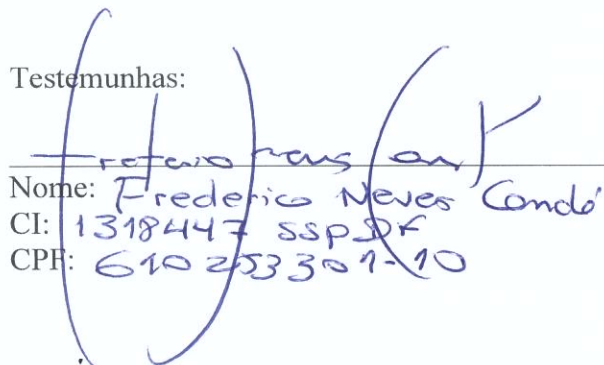 Testemunhas:
Nome: Frederico Neves Condé
CI: 1318447 SSPDF
CPF: 610253301-10